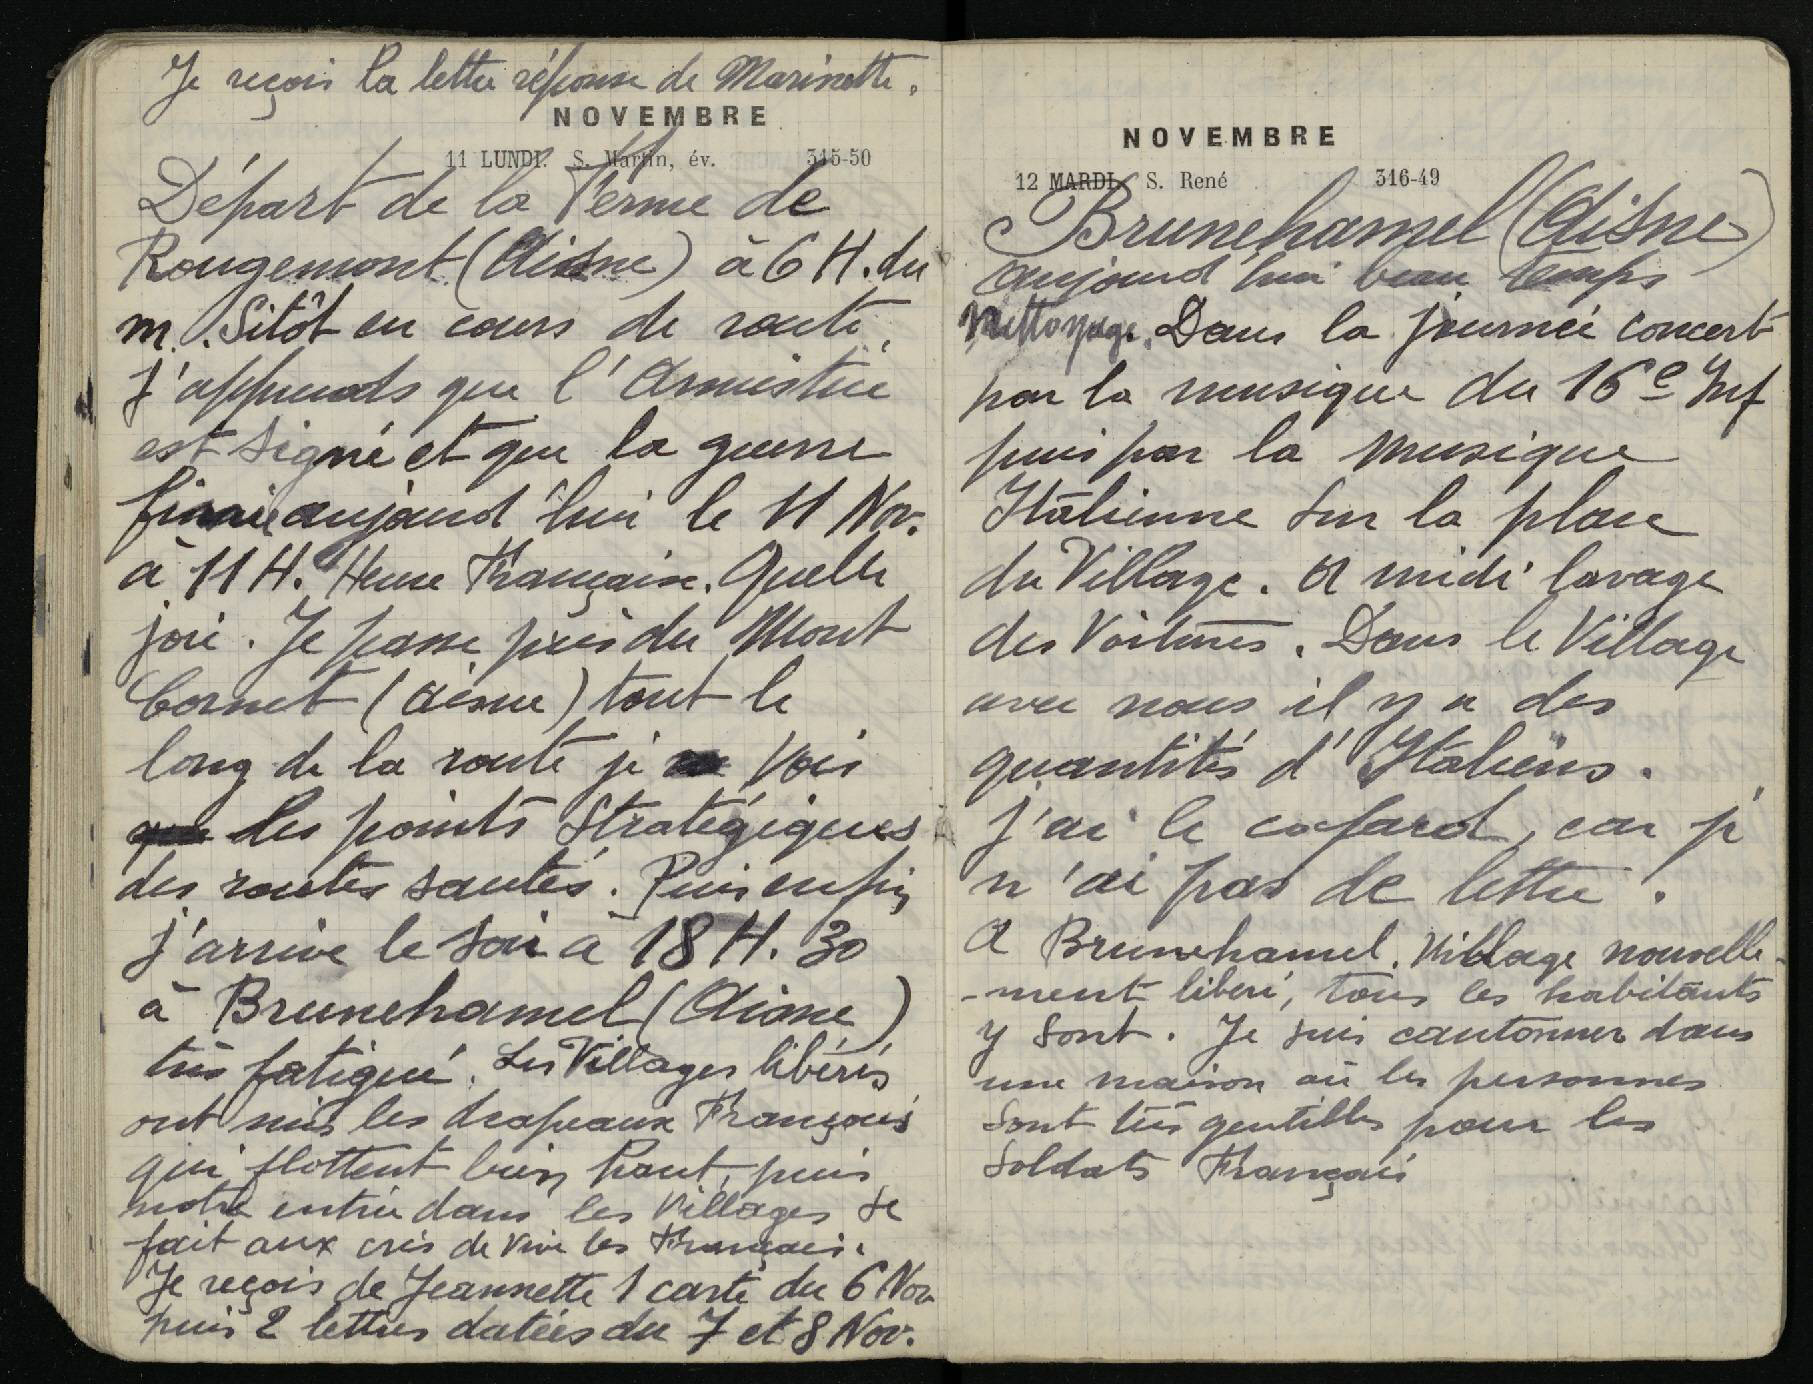 Je reçois la lettre réponse de Marinette.
NOVEMBRE
11 LUNDI. S. Martin, év. 315-50
Départ de la Ferme de
Rougemont (Aisne) à 6 H. du
m. Sitôt en cours de route,
j'apprends que l'Armistice
est signé et que la guerre
finie aujourd'hui le 11 Nov.
à 11 H. Heure Française. Quelle
joie. Je passe près du Mont
Cornet (Aisne) tout le
long de la route je vois
que les points Stratégiques
des routes sautés. Puis enfin
j'arrive le soir à 18 H. 30
à Brunehamel (Aisne)
très fatigué. Les Villages libérés
ont mis les drapeaux Français
qui flottent bien haut, puis
notre entrée dans les Villages se
fait aux cris de Vive les Français.
Je reçois de Jeannette 1 carte du 6 Nov
puis 2 lettres datées du 7 et 8 Nov.
NOVEMBRE
12 MARDI. S. René 316-49
Brunehamel (Aisne)
aujourd'hui beau temps
Nettoyage. Dans la journée concert
par la musique du 16e Inf
puis par la musique
Italienne sur la place
du Village. A midi lavage
des Voitures. Dans le Village
avec nous il y a des
quantités d'Italiens.
j'ai le cafard, car je
n'ai pas de lettre.
A Brunehamel. Village nouvelle-
-ment libéré, tous les habitants
y sont. Je suis cantonner dans
une maison où les personnes
sont très gentilles pour les
Soldats Français